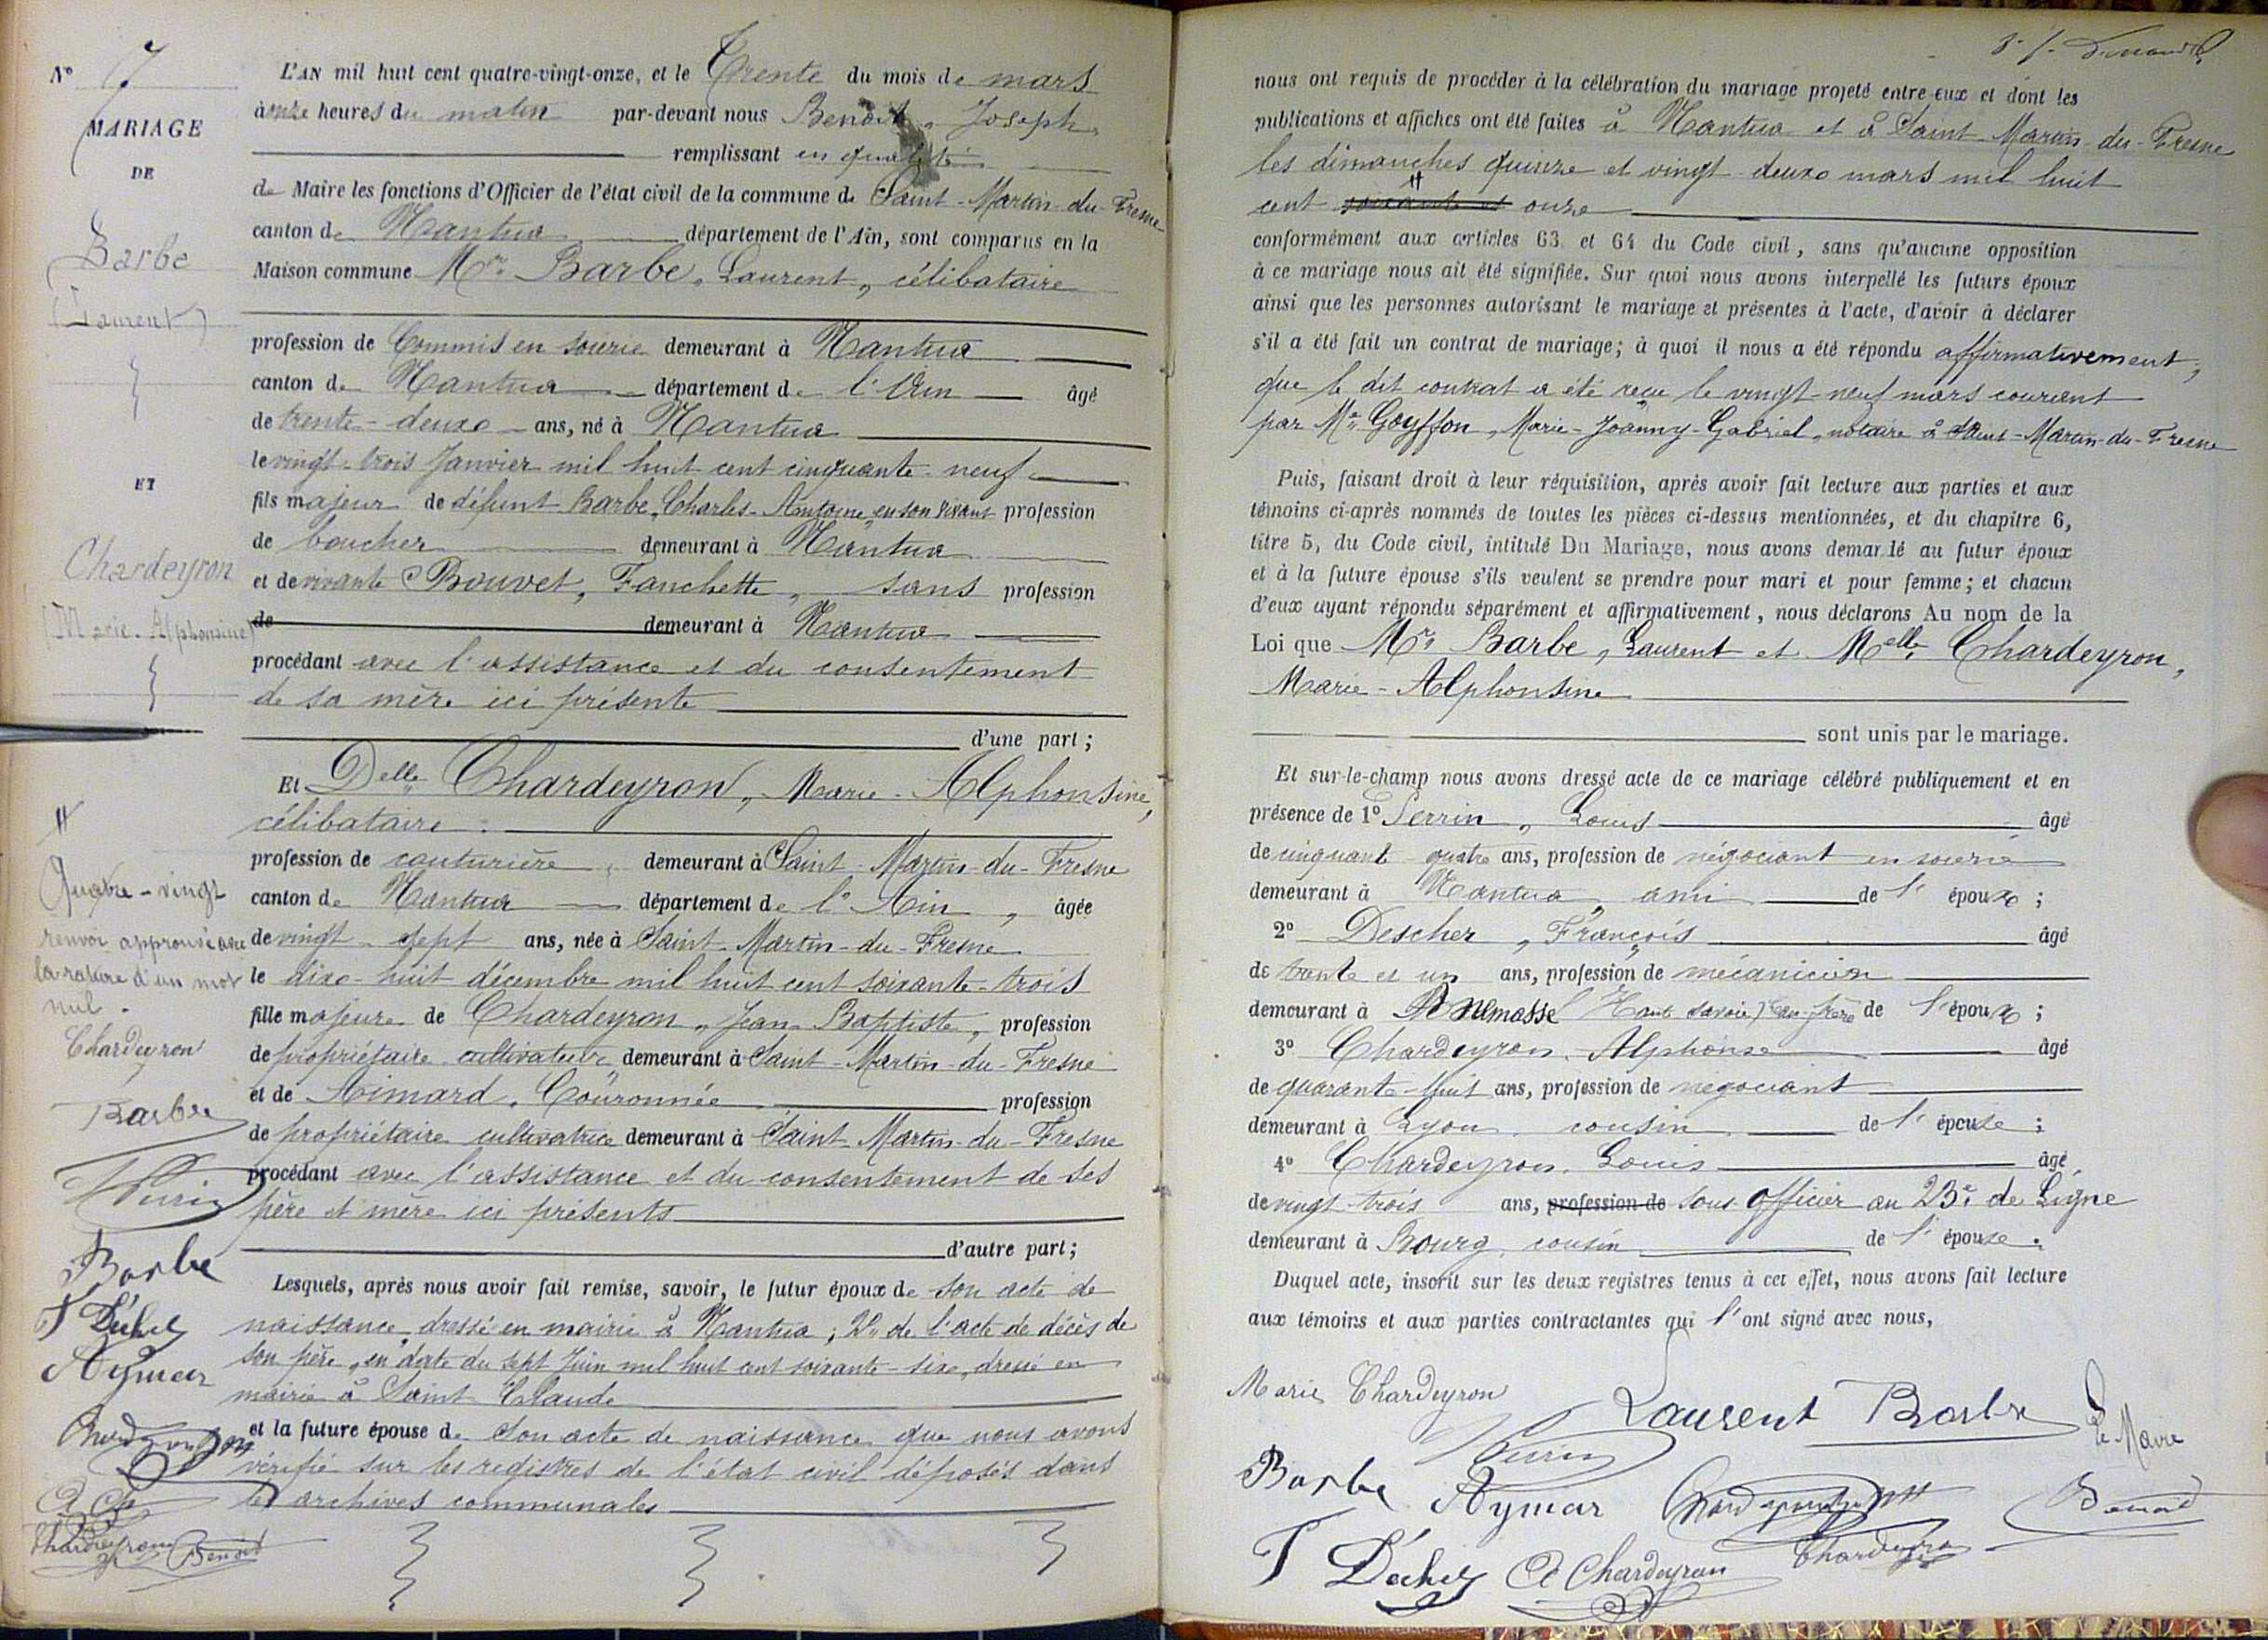 N° 7
MARIAGE
DE
Barbe
(Laurent)
ET
Chardeyron
(Marie-Alphonsine)
#
Quatre-vingt
renvoi approuvé avec
la rature d'un mot
nul.
Chardeyron
Barbe
Barbe
F Déchey
Aymar
A Ch
Chardeyron Benoit
L'AN mil huit cent quatre-vingt-onze, et le Trente du mois de mars
à onze heures du matin par-devant nous Benoit, Joseph,
remplissant en qualité
de Maire les fonctions d'Officier de l'état civil de la commune de Saint-Martin-du-Fresne
canton de Nantua département de l'Ain, sont comparus en la
Maison commune Mr Barbe, Laurent, célibataire
profession de Commis en scierie demeurant à Nantua
canton de Nantua département de l'Ain âgé
de trente-deux ans, né à Nantua
le vingt-trois Janvier mil huit cent cinquante-neuf
fils majeur de défunt Barbe, Charles-Antoine, en son vivant profession
de boucher demeurant à Nantua
et de vivante Bouvet, Fanchette, sans profession
de demeurant à Nantua
procédant avec l'assistance et du consentement
de sa mère ici présente
d'une part;
Et Delle Chardeyron, Marie-Alphonsine,
célibataire.
profession de couturière, demeurant à Saint-Martin-du-Fresne
canton de Nantua département de l'Ain, âgée
de vingt-sept ans, née à Saint-Martin-du-Fresne
le dix-huit décembre mil huit cent soixante-trois
fille majeure de Chardeyron, Jean-Baptiste, profession
de propriétaire cultivateur demeurant à Saint-Martin-du-Fresne
et de Aimard, Couronnée profession
de propriétaire cultivatrice demeurant à Saint-Martin-du-Fresne
procédant avec l'assistance et du consentement de ses
père et mère ici présents
d'autre part;
Lesquels, après nous avoir fait remise, savoir, le futur époux de son acte de
naissance dressé en mairie à Nantua; 2° de l'acte de décès de
son père, en date du sept Juin mil huit cent soixante-six, dressé en
mairie à Saint Claude
et la future épouse de son acte de naissance que nous avons
vérifié sur les registres de l'état civil déposés dans
les archives communales
nous ont requis de procéder à la célébration du mariage projeté entre eux et dont les
publications et affiches ont été faites à Nantua et à Saint-Martin-du-Fresne
les dimanches quinze et vingt-deux mars mil huit
cent # soixante et onze
conformément aux articles 63 et 64 du Code civil, sans qu'aucune opposition
à ce mariage nous ait été signifiée. Sur quoi nous avons interpellé les futurs époux
ainsi que les personnes autorisant le mariage et présentes à l'acte, d'avoir à déclarer
s'il a été fait un contrat de mariage; à quoi il nous a été répondu affirmativement,
que le dit contrat a été reçu le vingt-neuf mars courant
par Me Goyffon, Marie-Joanny-Gabriel, notaire à Saint-Martin-du-Fresne
Puis, faisant droit à leur réquisition, après avoir fait lecture aux parties et aux
témoins ci-après nommés de toutes les pièces ci-dessus mentionnées, et du chapitre 6,
titre 5, du Code civil, intitulé Du Mariage, nous avons demandé au futur époux
et à la future épouse s'ils veulent se prendre pour mari et pour femme; et chacun
d'eux ayant répondu séparément et affirmativement, nous déclarons Au nom de la
Loi que Mr Barbe, Laurent et Melle Chardeyron,
Marie-Alphonsine
sont unis par le mariage.
Et sur-le-champ nous avons dressé acte de ce mariage célébré publiquement et en
présence de 1° Perrin, Louis âgé
de cinquante-quatre ans, profession de négociant en scierie
demeurant à Nantua, ami de l'époux;
2° Descher, François âgé
de trente et un ans, profession de mécanicien
demeurant à Annemasse (Haute Savoie) beau-frère de l'époux;
3° Chardeyron, Alphonse âgé
de quarante-huit ans, profession de négociant
demeurant à Lyon, cousin de l'épouse;
4° Chardeyron, Louis âgé
de vingt-trois ans, profession de sous-officier au 23e de Ligne
demeurant à Bourg, cousin de l'épouse.
Duquel acte, inscrit sur les deux registres tenus à cet effet, nous avons fait lecture
aux témoins et aux parties contractantes qui l'ont signé avec nous,
Marie Chardeyron
Laurent Barbe
Le Maire
Barbe Aymar Benoit
F Déchey A Chardeyron Chardeyron